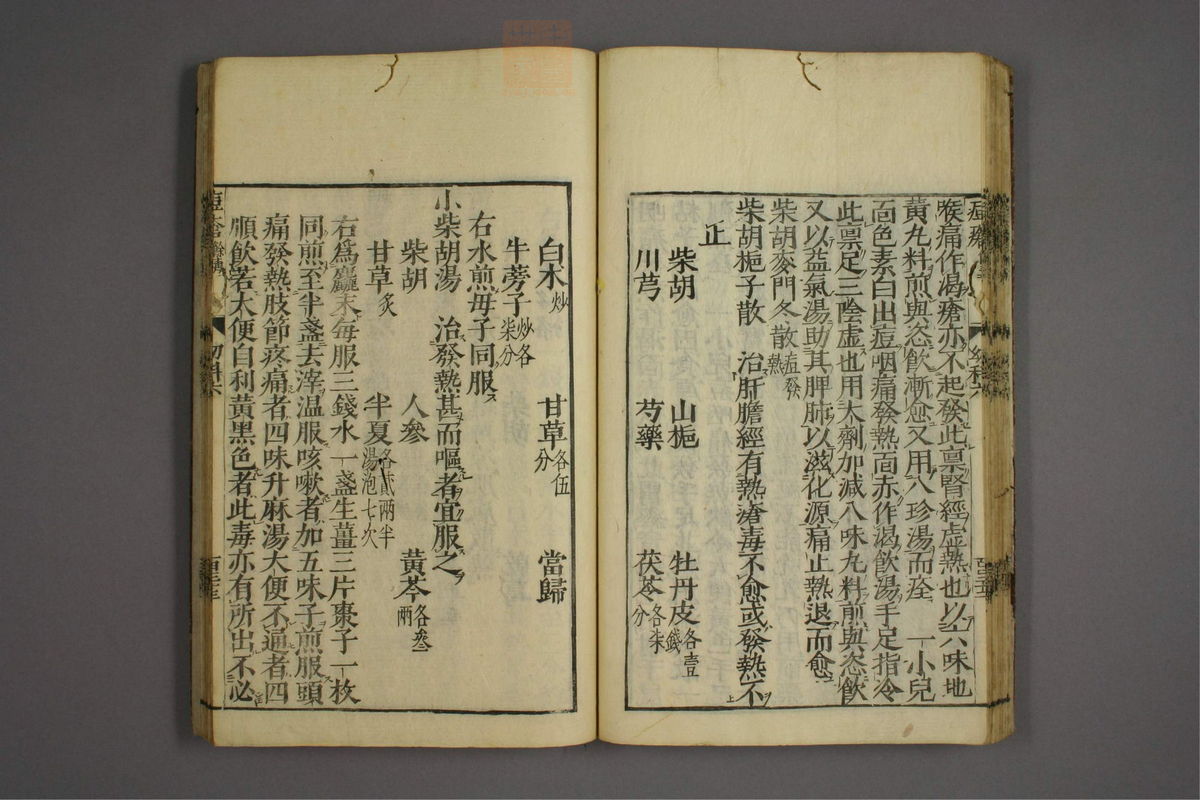 喉痛作渴瘡亦不起發此稟腎經虛熱也以六味地
黃丸料煎與恣飲漸愈又用八珍湯而痊　一小兒
面色素白出痘咽痛發熱面赤作渴飲湯手足指冷
此稟足三陰虛也用大劑加減八味丸料煎與恣飲
又以益氣湯助其脾肺以滋化源痛止熱退而愈
柴胡麥門冬散
柴胡梔子散　治肝膽經有熱瘡毒不愈或發熱不
正
柴胡　山梔　牡丹皮各壹錢
川芎　芍藥　茯苓各柒分
白朮炒　甘草各伍分　當歸
牛蒡子炒各柒分
右水煎母子同服
小柴胡湯　治發熱甚而嘔者宜服之
柴胡　人參　黃芩各叁兩
甘草炙　半夏各貳兩半湯泡七次
右為麤末每服三錢水一盞生薑三片棗子一枚
同煎至半盞去滓溫服咳嗽者加五味子煎服頭
痛發熱肢節疼痛者四味升麻湯大便不通者四
順飲若大便自利黃黑色者此毒亦有所出不必